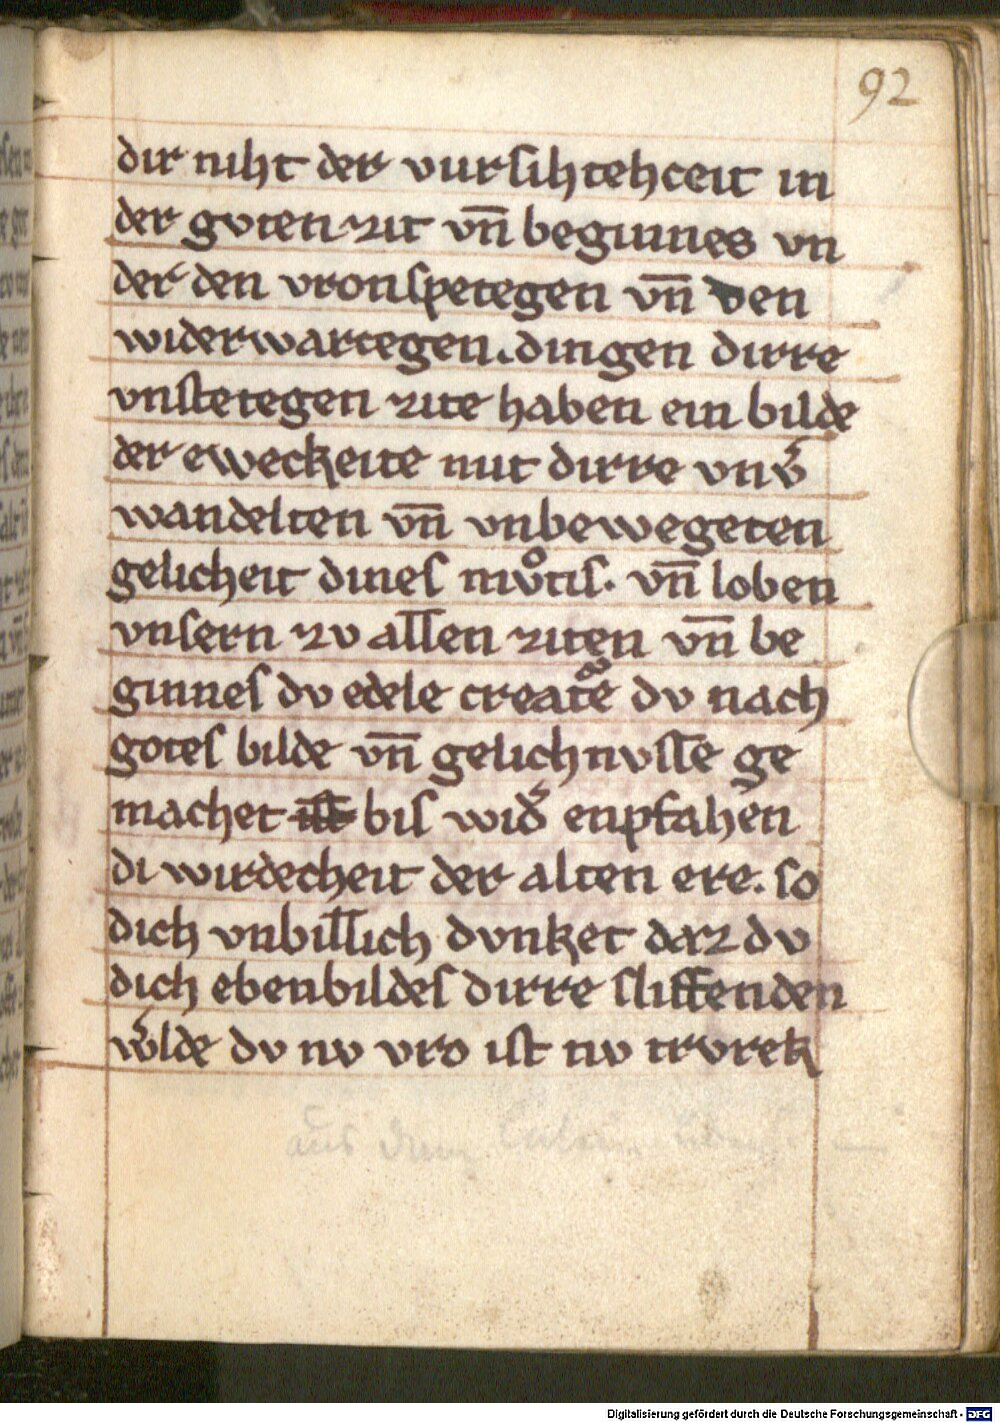 92
dir niht der vursihtehceit in
der gvten zit vn̄ beginnes vn
der den vronspetegen vn̄ den
widerwartegen. dingen dirre
vnstetegen zite haben ein bilde
der eweckeite mit dirre vnv̓
wandelten vn̄ vnbewegeten
gelicheit dines mvͦtis. vn̄ loben
vnsern zv allen ziten vn̄ be
ginnes dv edele creatᵉ dv nach
gotes bilde vn̄ gelichnvsse ge
machet bis wid̓ enpfahen
di wirdecheit der alten ere. so
dich vnbillich dvnket daz dv
dich ebenbildes dirre sliffenden
w̓lde dv nv vro ist nv trvrek
aus dem
Digitalisierung gefördert durch die Deutsche Forschungsgemeinschaft - DFG